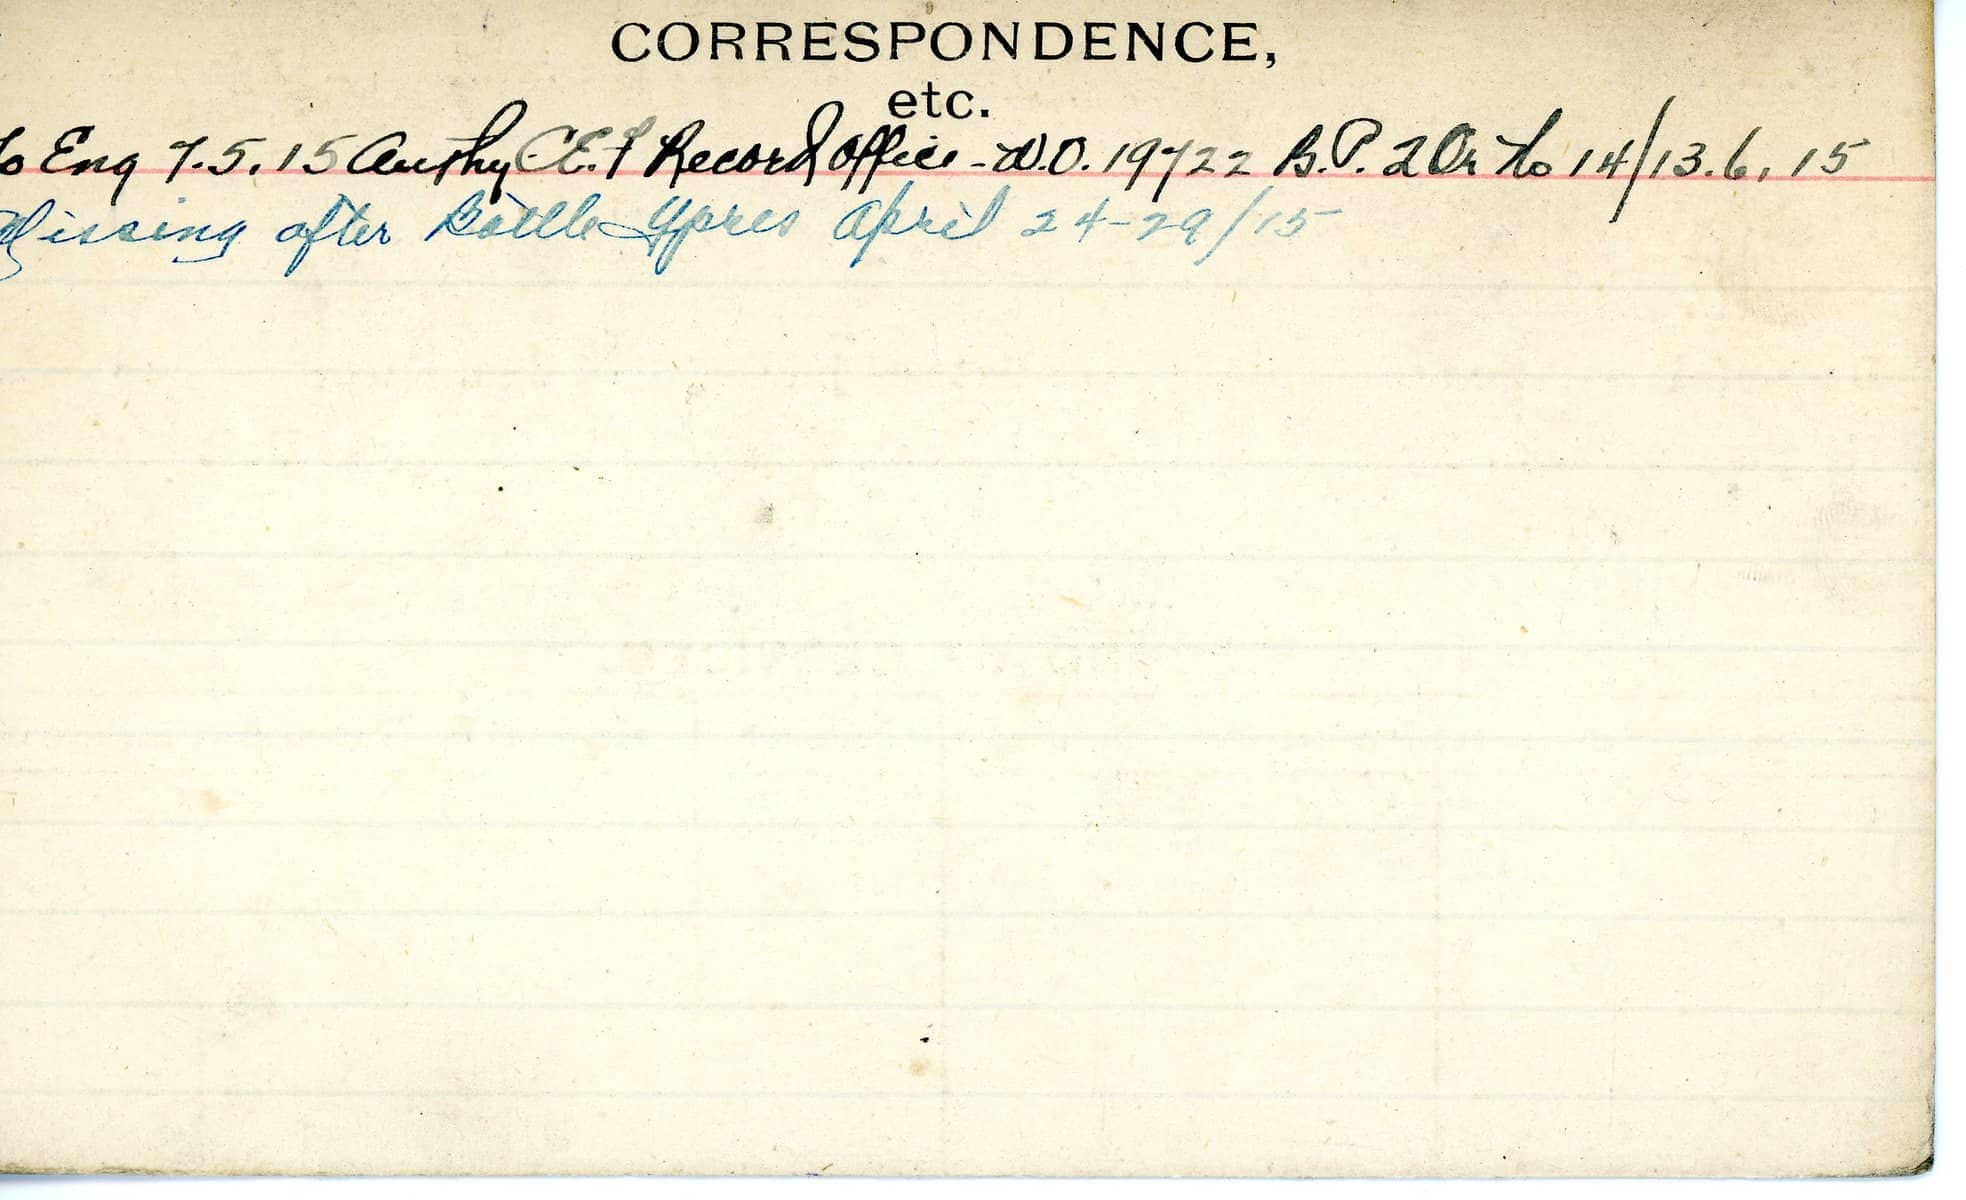 CORRESPONDENCE,
etc.
to Eng 7.5.15 Authy C.E.F Record Office - W.O. 19722 B.P. 2 Or No 14/13.6.15
Missing after Battle Ypres April 24-29/15